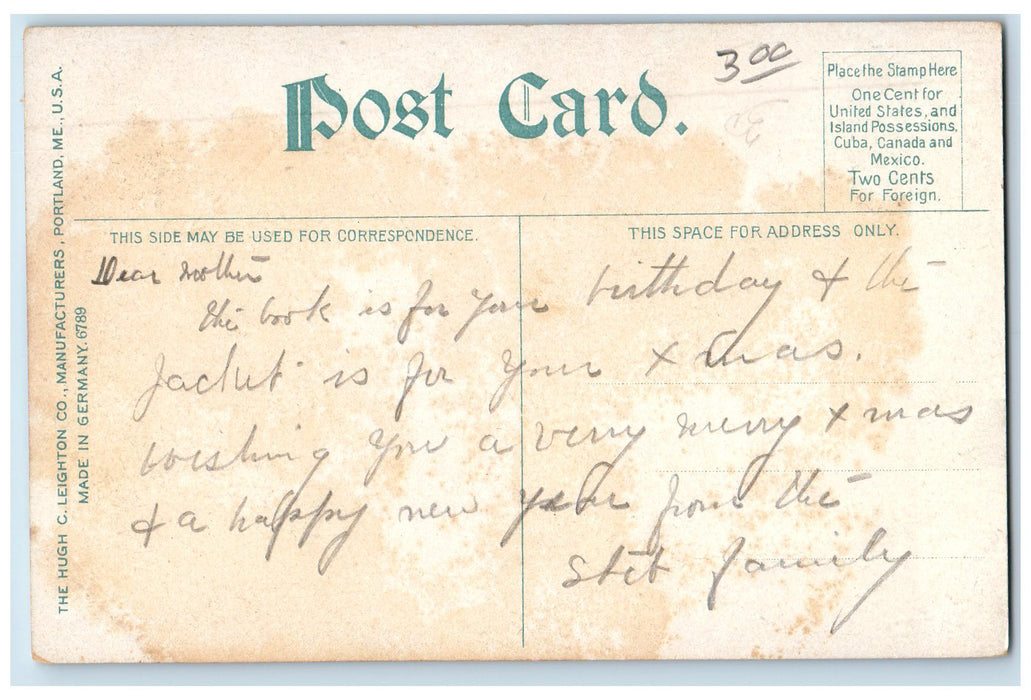 THE HUGH C. LEIGHTON CO., MANUFACTURERS, PORTLAND, ME., U.S.A.
MADE IN GERMANY. 6789
Post Card.
3.00
Place the Stamp Here
One Cent for
United States, and
Island Possessions,
Cuba, Canada and
Mexico.
Two Cents
For Foreign.
THIS SIDE MAY BE USED FOR CORRESPONDENCE.
THIS SPACE FOR ADDRESS ONLY.
Dear Mother
the book is for your birthday & the
Jacket is for your Xmas.
wishing you a very merry Xmas
& a happy new year from the
family